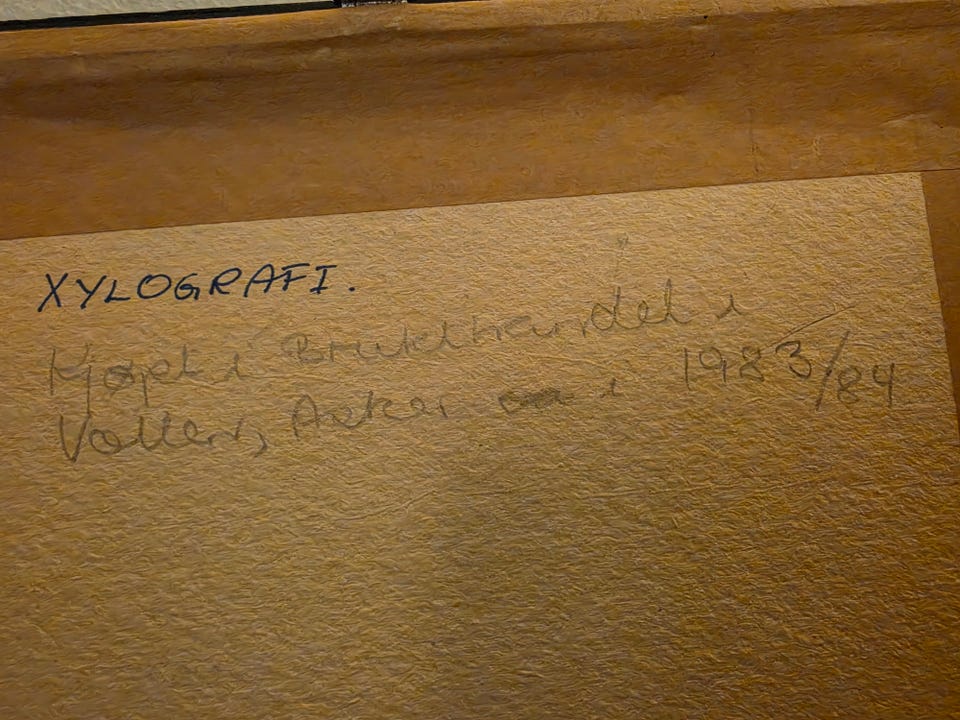 XYLOGRAFI.
Kjøpt i Brukthandel i
Vollen, Asker i 1983/84